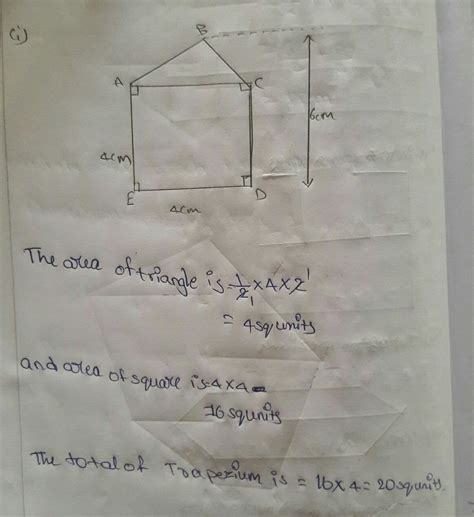 (i)
B
A
C
6cm
4cm
E
D
4cm
The area of triangle is = 1/2 × 4 × 2
= 4 sq units
and area of square is = 4 × 4 =
16 sq units
The total of Trapezium is = 16 × 4 = 20 sq units.